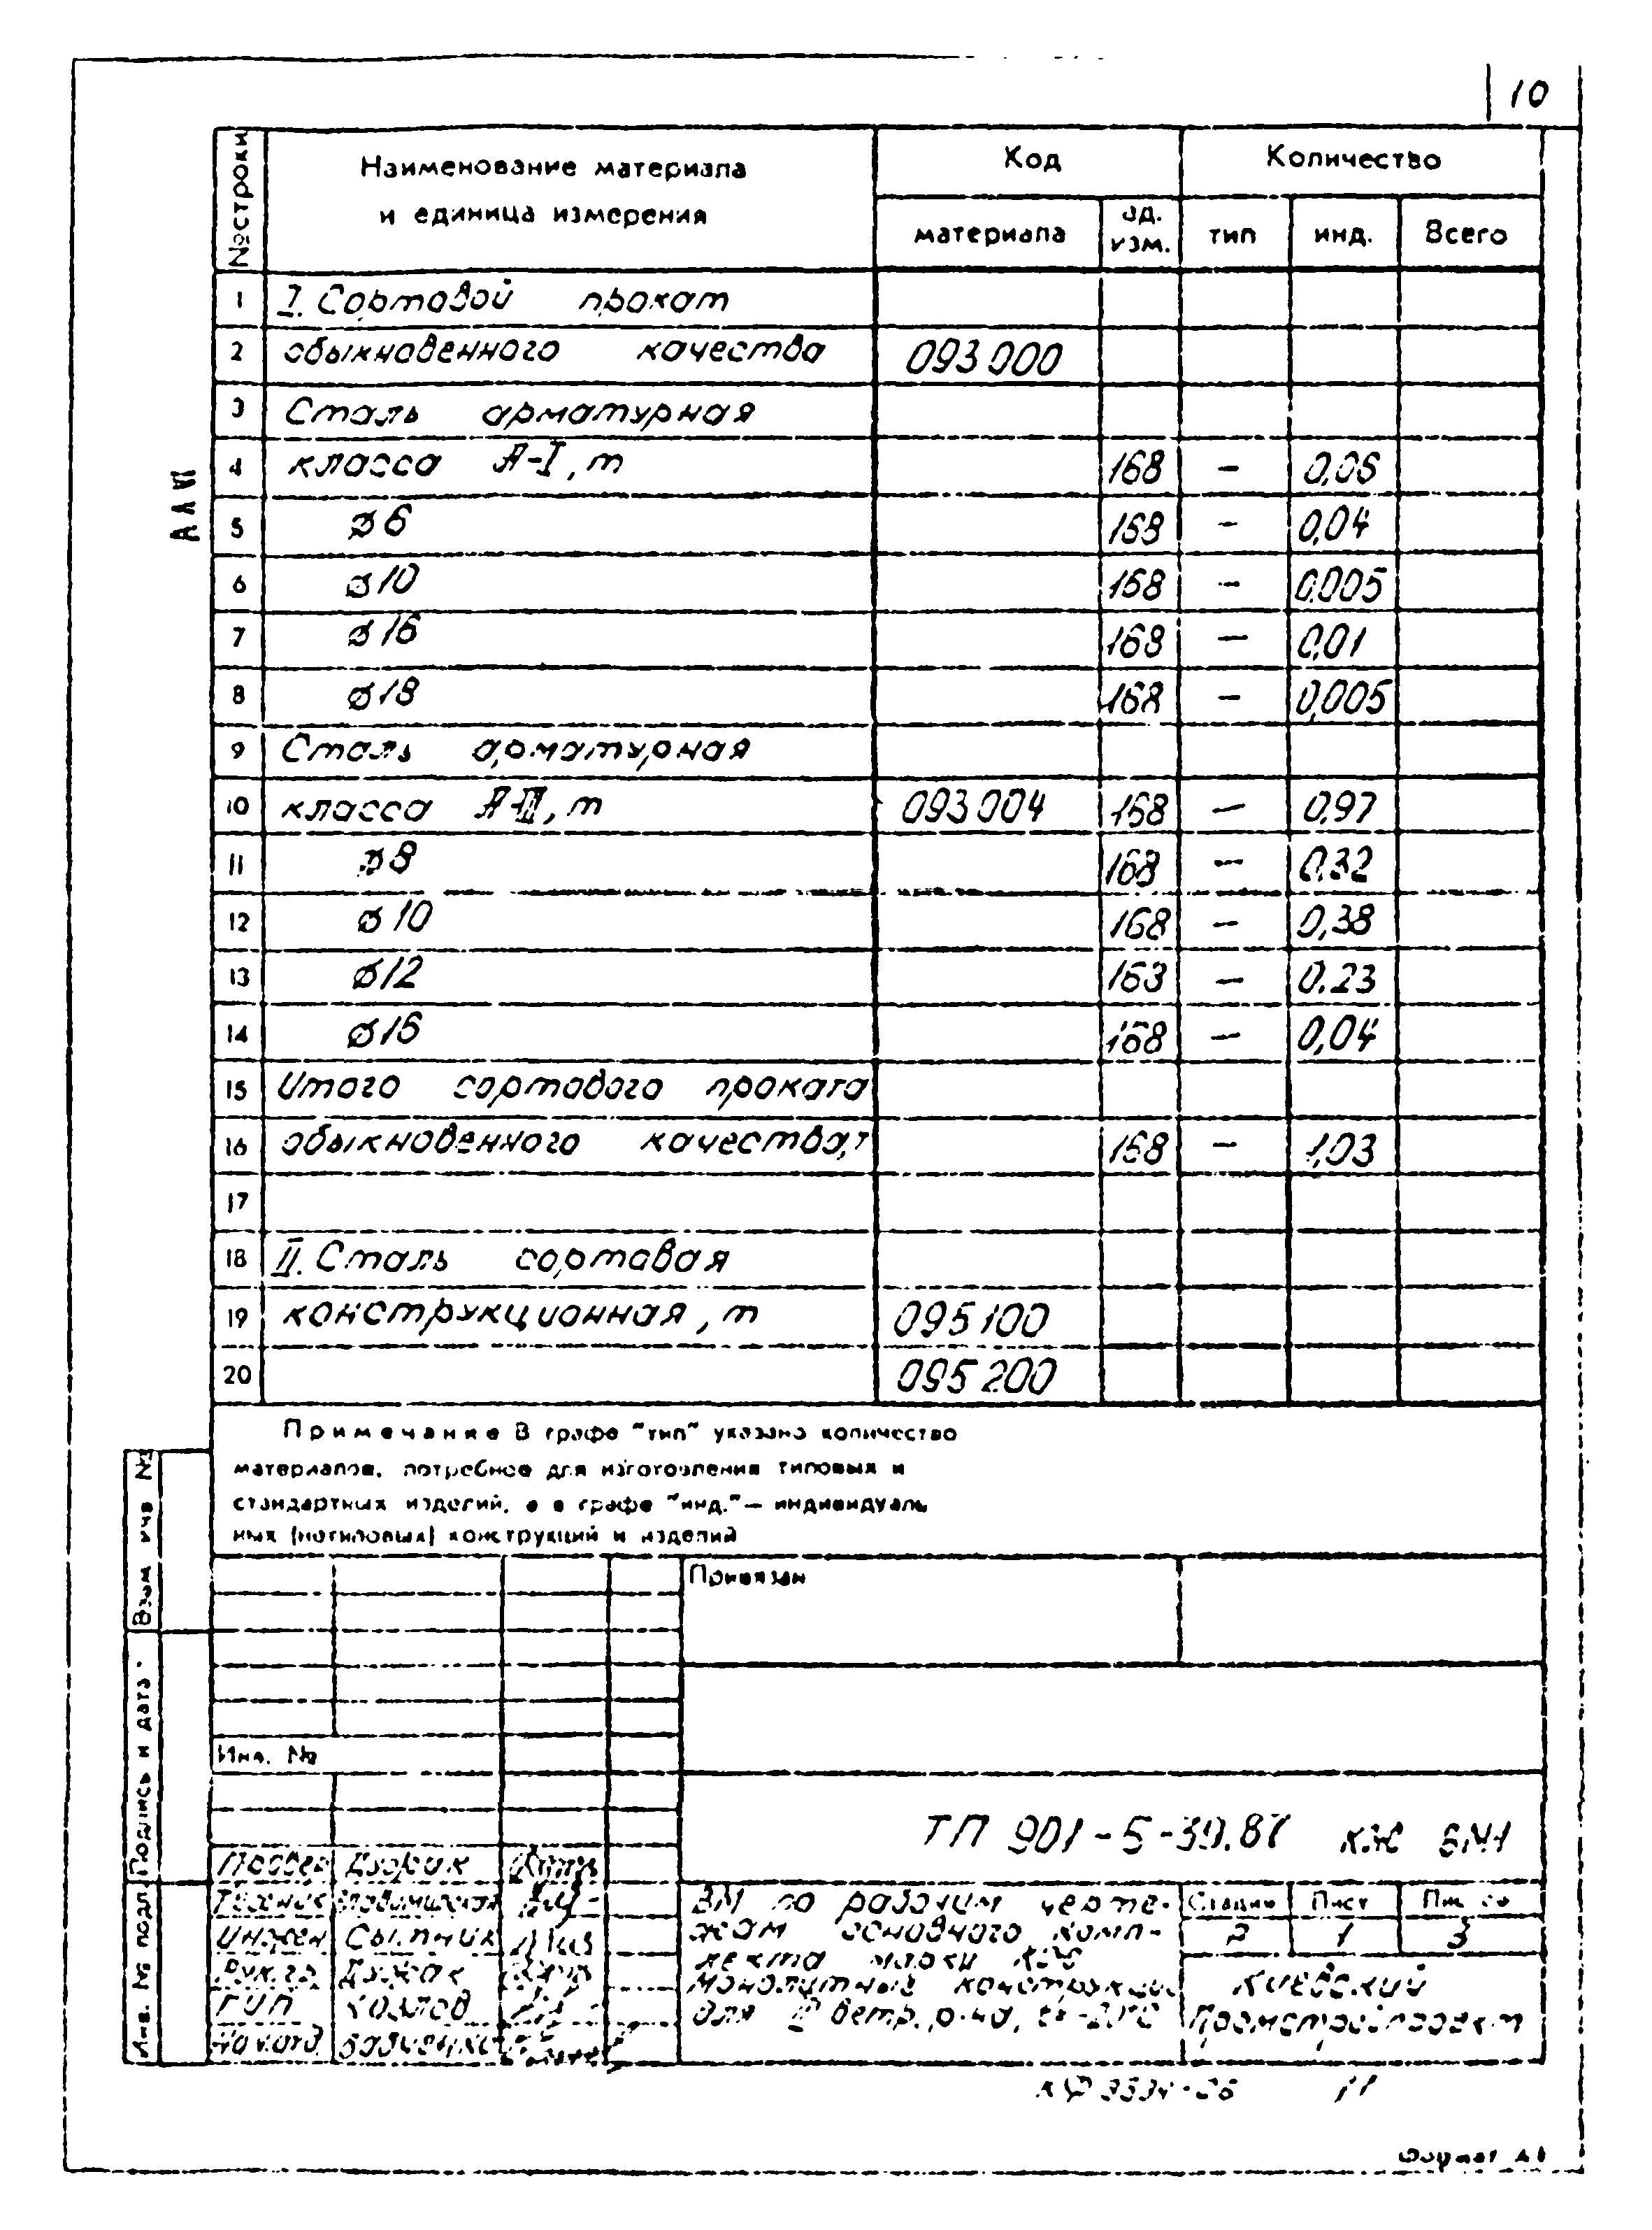 10
№ строки | Наименование материала и единица измерения | Код | Количество
материала | ед. изм. | тип | инд. | Всего
1 I. Сортовой прокат
2 обыкновенного качества 093000
3 Сталь арматурная
4 класса А-I, т 168 – 0,06
5 ø6 168 – 0,04
6 ø10 168 – 0,005
7 ø16 168 – 0,01
8 ø18 168 – 0,005
9 Сталь арматурная
10 класса А-III, т 093004 168 – 0,97
11 ø8 168 – 0.32
12 ø10 168 – 0,38
13 ø12 168 – 0.23
14 ø16 168 – 0,04
15 Итого сортового проката
16 обыкновенного качества,т 168 – 1,03
17
18 II. Сталь сортовая
19 конструкционная, т 095100
20 095200
Примечание В графе "тип" указано количество
материалов, потребное для изготовления типовых и
стандартных изделий, а в графе "инд."– индивидуаль
ных (нетиповых) конструкций и изделий
Привязан
Инв. №
ТП 901-5-39.87 КЖ ВМ1
Провер Дворак
Техник
Инжен Сытник
Рук.гр Дворак
ГИП Козлов
Нач.отд
ВМ по рабочим черте-
жам основного комп-
лекта марки КЖ
Монолитные конструкции
для
Стадия Лист Листов
Р 1 3
Киевский
Промстройпроект
Взам инв №
Подпись и дата
Инв. № подл
11
Формат А4